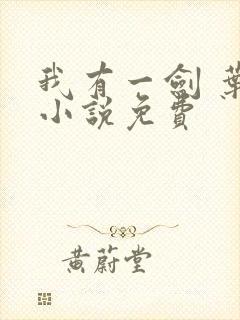 我有一劍 葉
小說免費
黃蔚堂